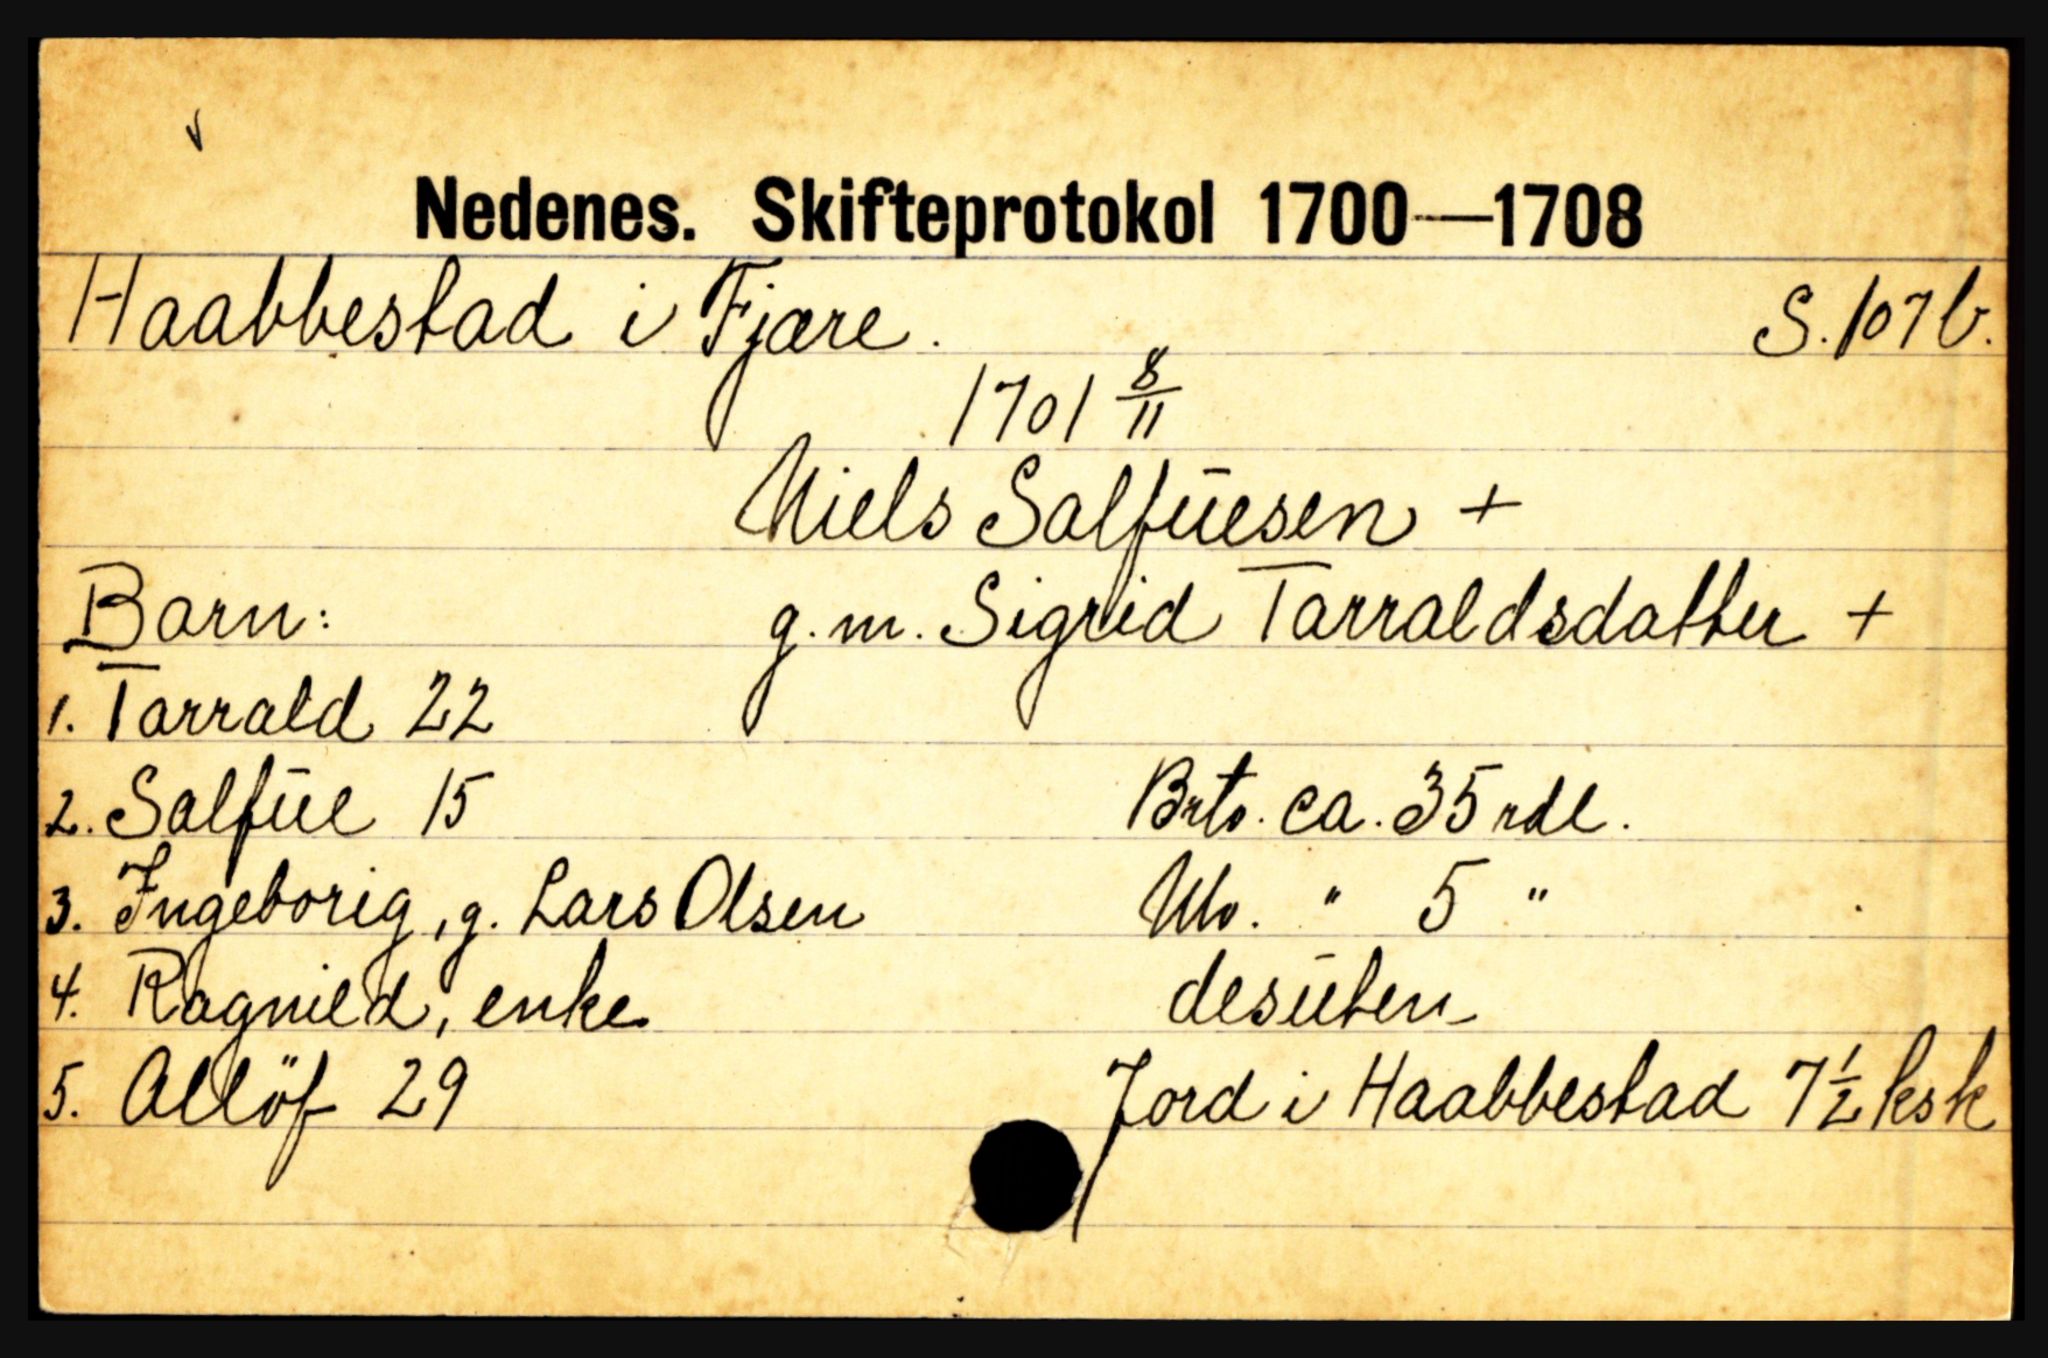 Nedenes. Skifteprotokol 1700—1708
Haabbestad i Fjære. S. 107 b.
1701 8/11
Niels Salfuesen +
Barn: g.m. Sigrid Tarraldsdatter +
1. Tarrald 22
2. Salfue 15 Brto. ca. 35 rdl.
3. Ingeborig, g. Lars Olsen Nto. " 5 "
4. Ragnild, enke desuten
5. Allöf 29 Jord i Haabbestad 7 1/2 ksk